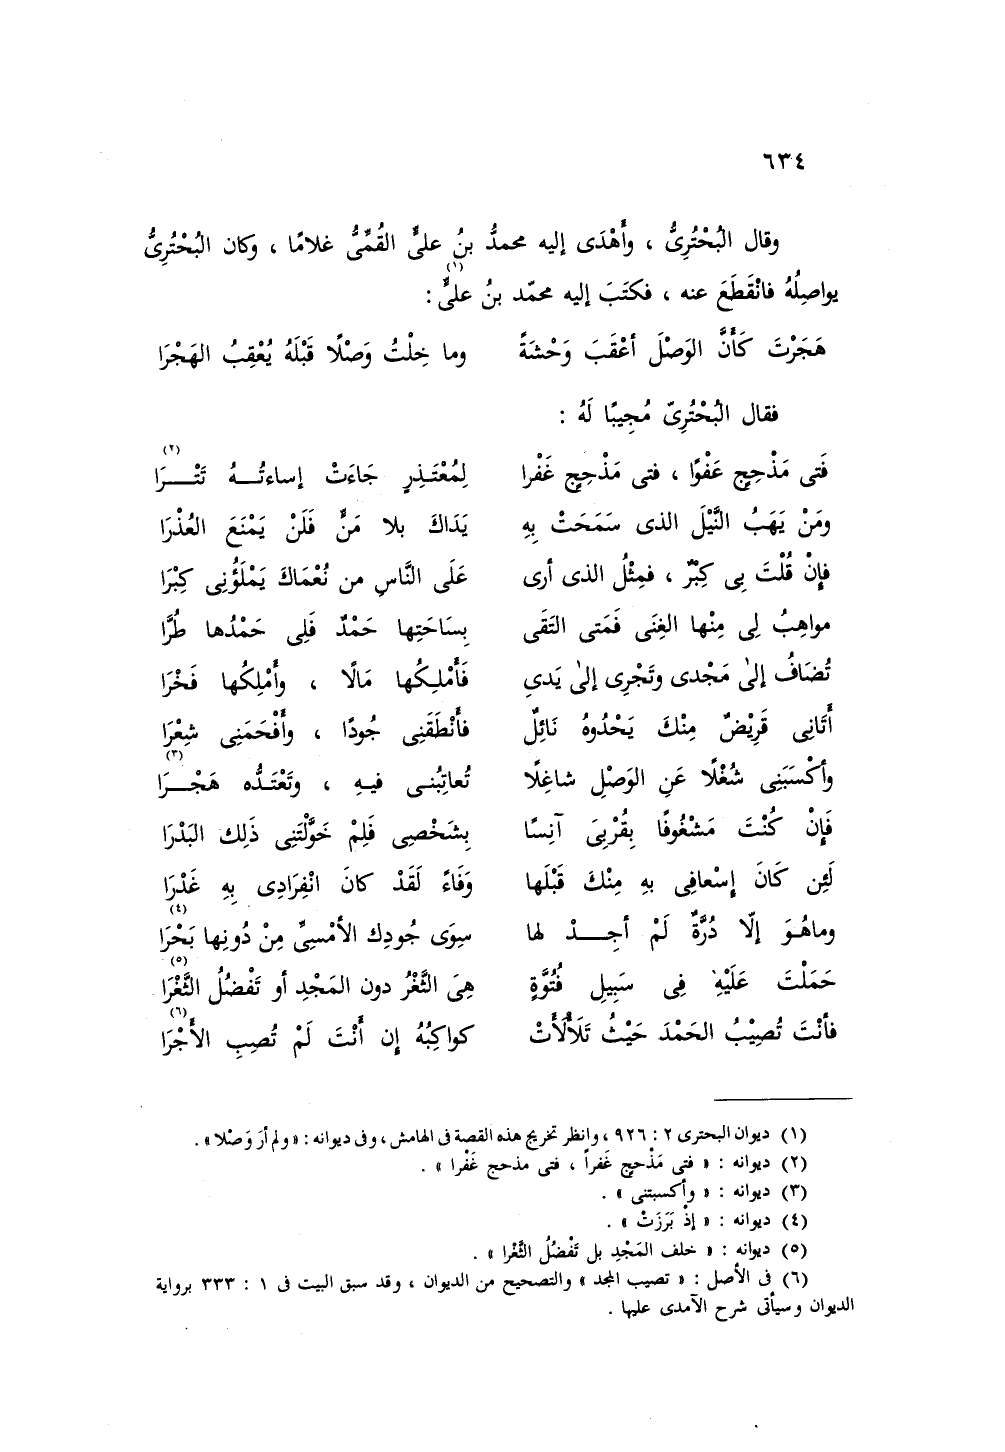 ٦٣٤
وقال البُحْتُرِىُّ ، وأَهْدَى إليه محمدُّ بنُ علىٍّ القُمِّىُّ غلامًا ، وكان البُحْتُرِىُّ
يواصِلُهُ فانْقَطَعَ عنه ، فكتَبَ إليه محمّد بنُ علىٍّ (١) :
هَجَرْتَ كَأَنَّ الوَصْلَ أعْقَبَ وَحْشَةً وما خِلْتُ وَصْلًا قَبْلَهُ يُعْقِبُ الهَجْرَا
فقال البُحْتُرِىّ مُجِيبًا لَهُ :
فَتى مَذْحِجٍ عَفْوًا ، فتى مَذْحِجٍ غَفْرا لِمُعْتَـذِرٍ جَاءَتْ إساءتُـــهُ تَتْـــرَا (٢)
ومَنْ يَهَبُ النَّيْلَ الذى سَمَحَتْ بِهِ يَدَاكَ بلا مَنٍّ فَلَنْ يَمْنَعَ العُذْرَا
فإنْ قُلْتَ بِى كِبْرٌ ، فمِثْلُ الذى أرى عَلَى النَّاسِ من نُعْمَاكَ يَمْلَؤُنِى كِبْرَا
مواهِبُ لِى مِنْها الغِنَى فَمَتى التَقَى بِسَاحَتِها حَمْدٌ فَلِى حَمْدُها طُرَّا
تُضَافُ إلىٰ مَجْدى وتَجْرِى إلىٰ يَدىِ فَأَمْلِـكُها مَالًا ، وأَمْلِكُها فَخْرَا
أَتَانِى قَرِيْضٌ مِنْكَ يَحْدُوهُ نَائِلٌ فأَنْطَقَنِى جُودًا ، وأَفْحَمَنِى شِعْرَا
وأكْسَبَنِى شُغْلًا عَنِ الوَصْلِ شاغِلًا تُعاتِبُنـى فيـهِ ، وتَعْتَدُّه هَجْـــرَا (٣)
فَإِنْ كُنْتَ مَشْغُوفًا بِقُرْبِىَ آنِسًا بِشَخْصِى فَلِمْ خَوَّلْتَنِى ذَلِك البَدْرَا
لَئِن كَانَ إسْعافِى بهِ مِنْكَ قَبْلَها وَفَاءً لَقَدْ كانَ انْفِرَادِى بِهِ غَدْرَا
وماهُـوَ إلّا دُرَّةٌ لَمْ أجِـــدْ لها سِوَى جُودِك الأمْسِىِّ مِنْ دُونِها بَحْرَا (٤)
حَمَلْتَ عَلَيْهِ فِى سَبِيلِ فُتُوَّةٍ هِىَ الثَّغْرُ دون المَجْدِ أو تَفْضُلُ الثَّغْرَا (٥)
فأنْتَ تُصِيْبُ الحَمْدَ حَيْثُ تَلَأْلَأَتْ كواكِبُهُ إن أَنْتَ لَمْ تُصِبِ الأَجْرَا (٦)
(١) ديوان البحترى ٢ : ٩٢٦ ، وانظر تخريج هذه القصة فى الهامش ، وفى ديوانه : « ولم أرَ وَصْلا » .
(٢) ديوانه : « فتى مَذْحجٍ غَفراً ، فتى مذحج غَفْرا » .
(٣) ديوانه : « وأكسبتنى » .
(٤) ديوانه : « إذْ بَرَزَتْ » .
(٥) ديوانه : « خلف المَجْدِ بل تَفْضُلُ الثَّغْرا » .
(٦) فى الأصل : « تصيب المجد » والتصحيح من الديوان ، وقد سبق البيت فى ١ : ٣٣٣ برواية
الديوان وسيأتى شرح الآمدى عليها .